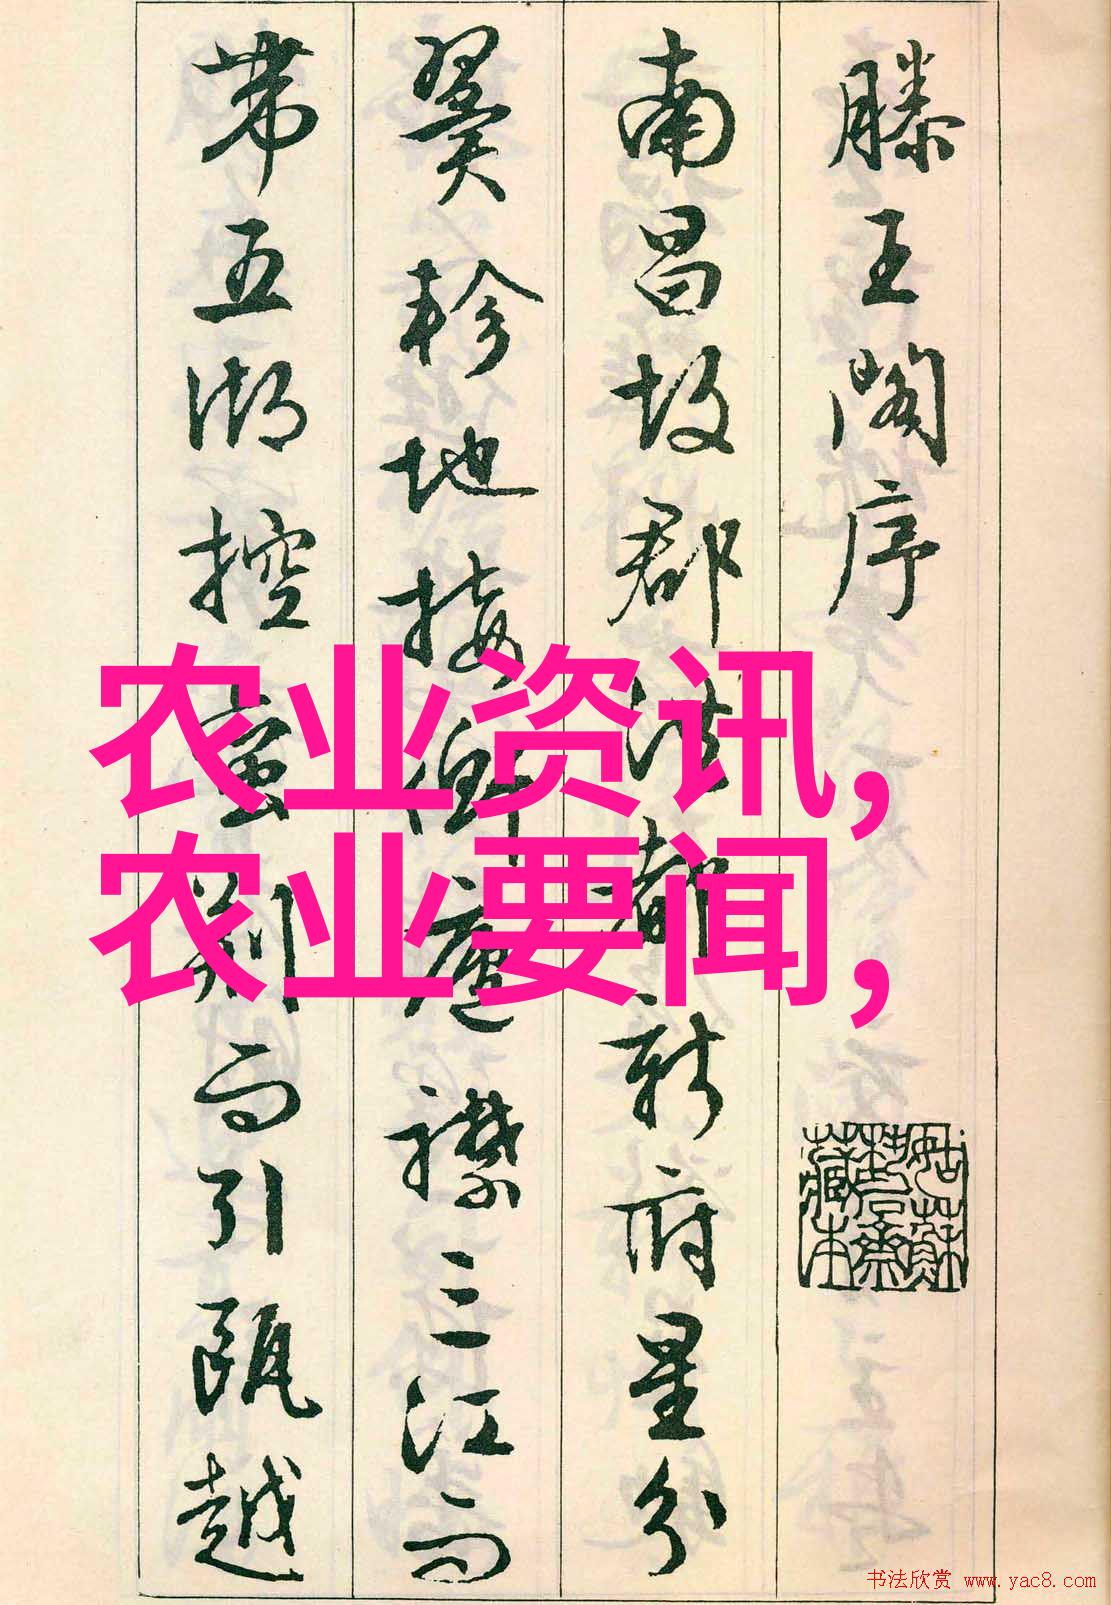 滕王阁序
南昌故郡洪都新府星分
翼轸地接衡廬襟三江而
带五湖控蛮荆而引瓯越
农业资讯,
农业要闻,
书法欣赏 www.yac8.com